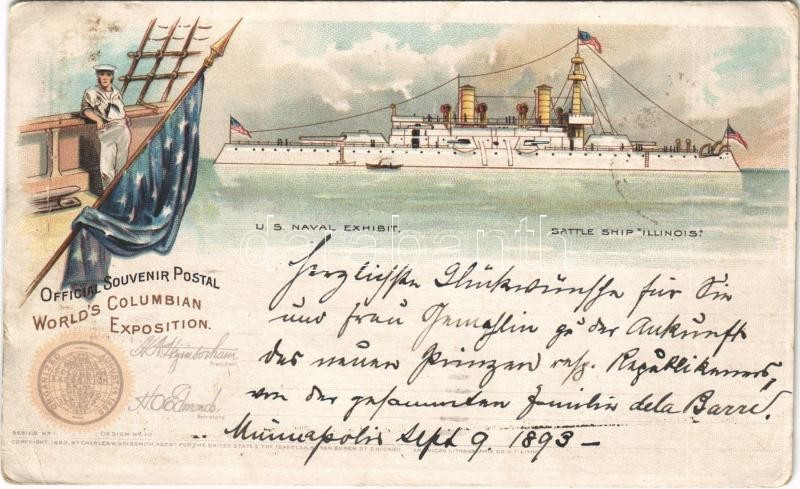 U.S. NAVAL EXHIBIT.
BATTLE SHIP "ILLINOIS."
OFFICIAL SOUVENIR POSTAL
WORLD'S COLUMBIAN
EXPOSITION.
President.
Secretary.
SERIES No 1. DESIGN No 10
COPYRIGHT, 1893, BY CHARLES W. GOLDSMITH, AGENT FOR THE UNITED STATES, THE ISABELLA, VAN BUREN ST CHICAGO. AMERICAN LITHOGRAPHIC CO. N.Y. LITH.
Herzlichste Glückwünsche für Sie
und Frau Gemahlin zu der Ankunft
des neuen Prinzen resp. Republikaners,
von der gesammten Familie de la Barre.
Minneapolis Sept 9. 1893 -
darabanth